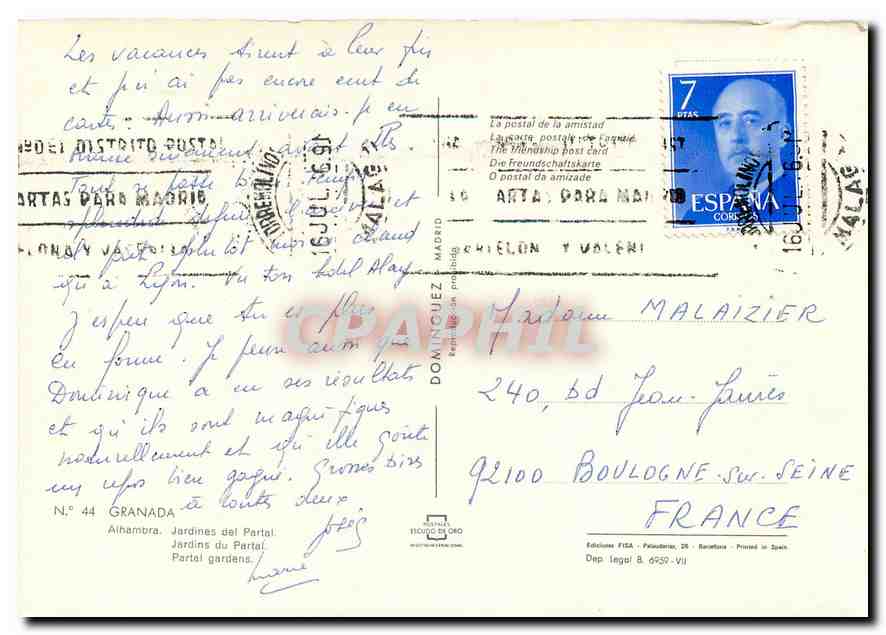 Les vacances tirent à leur fin
et j'ai pas encore écrit de
cartes. Aussi arriverais-je en
Tout se passe bien. Temps
splendide depuis l'arrivée et
il fait plutôt moins chaud
qu'à Lyon.
J'espère que tu es plus
en forme. Je pense aussi que
Dominique a eu ses résultats
et qu'ils sont magnifiques
naturellement et qu'elle goûte
un repos bien gagné. Grosses bises
à toutes deux
N.° 44 GRANADA
Alhambra. Jardines del Partal.
Jardins du Partal.
Partal gardens.
DOMINGUEZ MADRID
Reproducción prohibida
POSTALES
ESCUDO DE ORO
La postal de la amistad
La carte postale de l'amitié
The friendship post card
Die Freundschaftskarte
O postal da amizade
7
PTAS
ESPAÑA
CORREOS
DISTRITO POSTAL
CARTAS PARA MADRID
TORREMOLINOS
16 JUL
MALAGA
CARTAS PARA MADRID
TORREMOLINOS
16 JUL
MALAGA
Madame MALAIZIER
240, bd Jean-Jaurès
92100 BOULOGNE-sur-SEINE
FRANCE
Ediciones FISA - Palaudarias, 26 - Barcelona - Printed in Spain
Dep. Legal B. 6959-VII
CPAPHIL